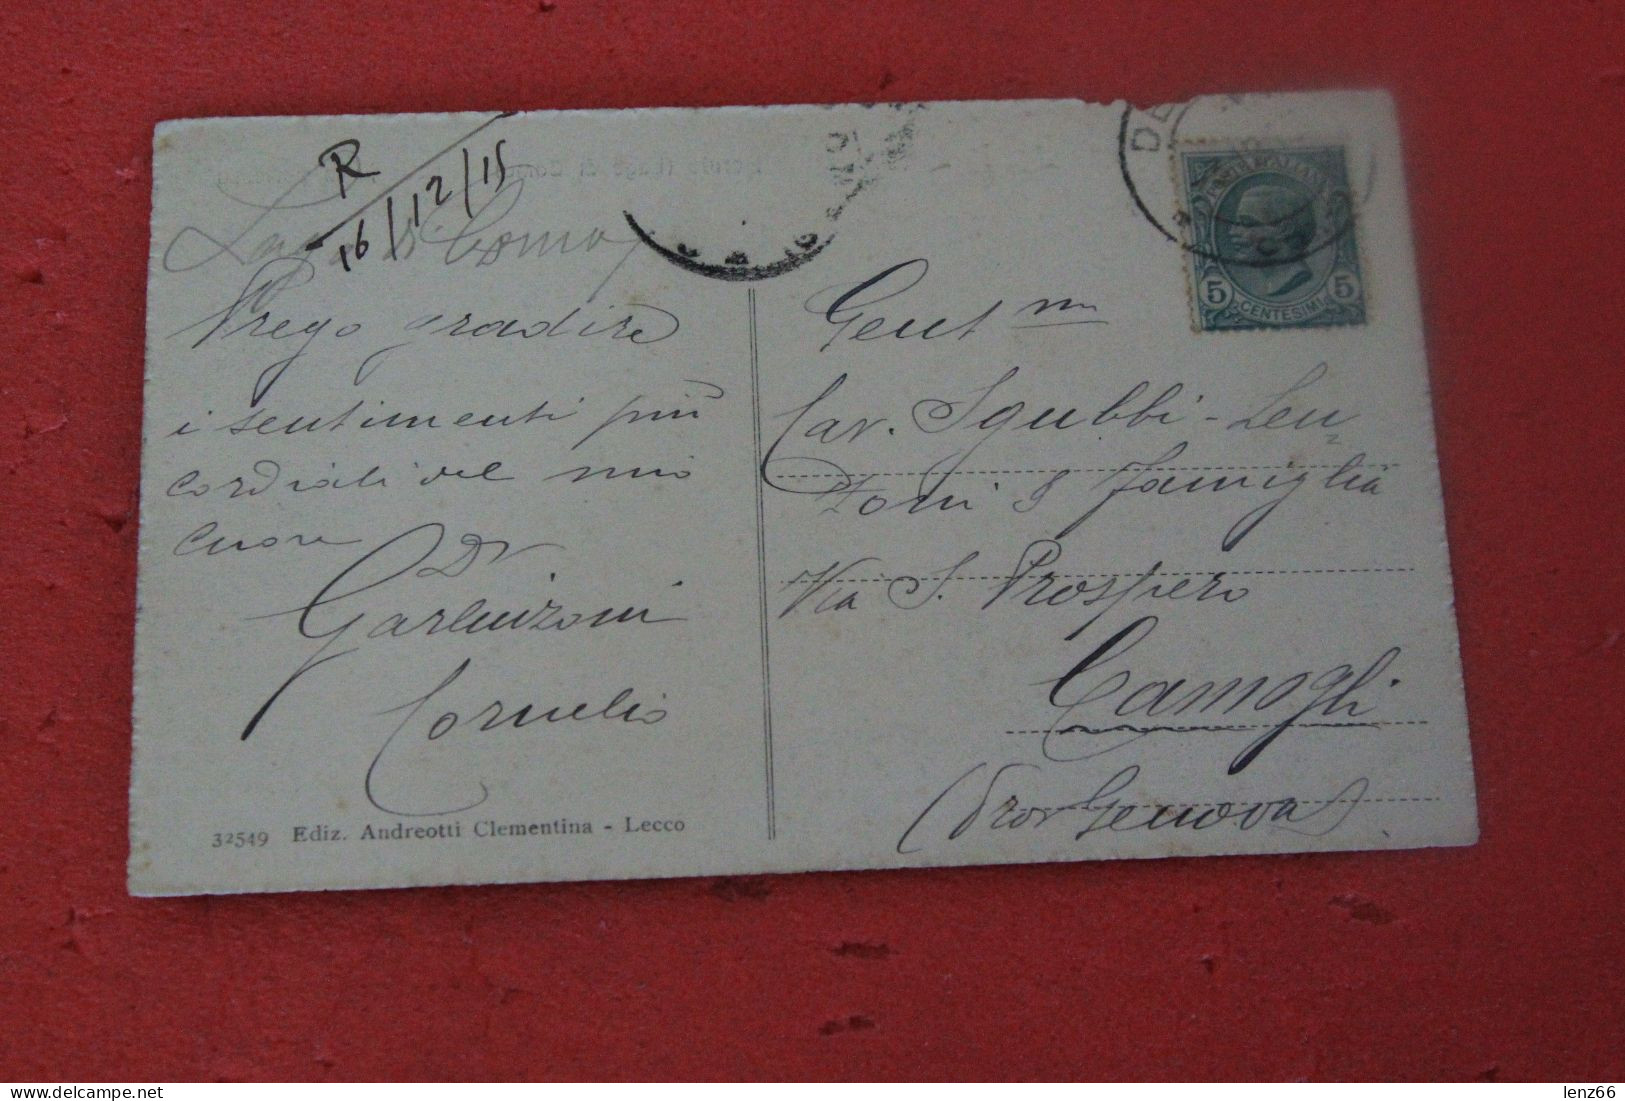 R
16/12/15
Lago di Como
Prego gradire
i sentimenti più
cordiali del mio
cuore
Dr
Garbuizoni
Cornelio
32549 Ediz. Andreotti Clementina - Lecco
Gent mo
Cav. Sgubbi - Leu=
Toni & famiglia
Via S. Prospero
Camogli
(Prov Genova)
5 CENTESIMI 5
lenz66